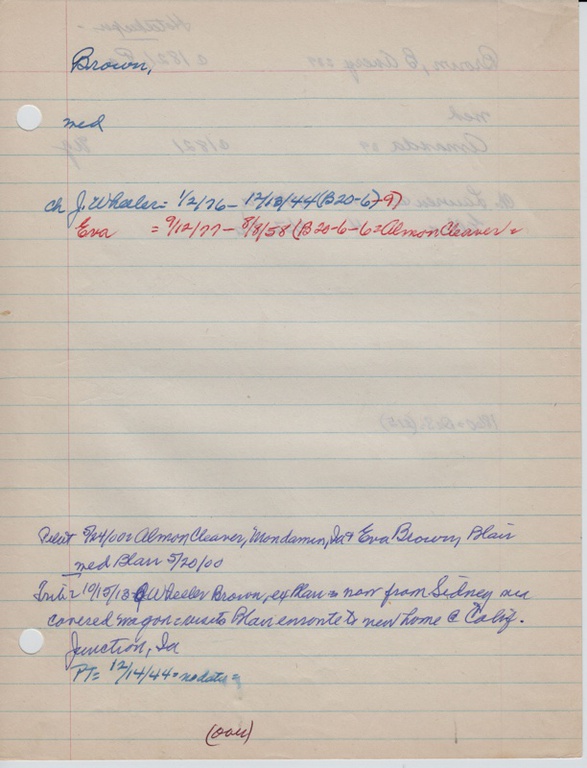 Brown,
med
ch J. Wheeler = 1/2/76 - 12/13/44 (B20-6-9)
Eva = 9/12/77 - 8/8/58 (B20-6-6 = Almon Cleaver =
Pilot 5/24/00 = Almon Cleaver, Mondamin, Ia + Eva Brown, Blair
med Blair 5/20/00
Trib = 10/15/13 = J Wheeler Brown, ex Blair = now from Sidney via
covered wagon = visits Blair enroute to new home @ Calif.
Junction, Ia
PT = 12/14/44 = no data =
(over)